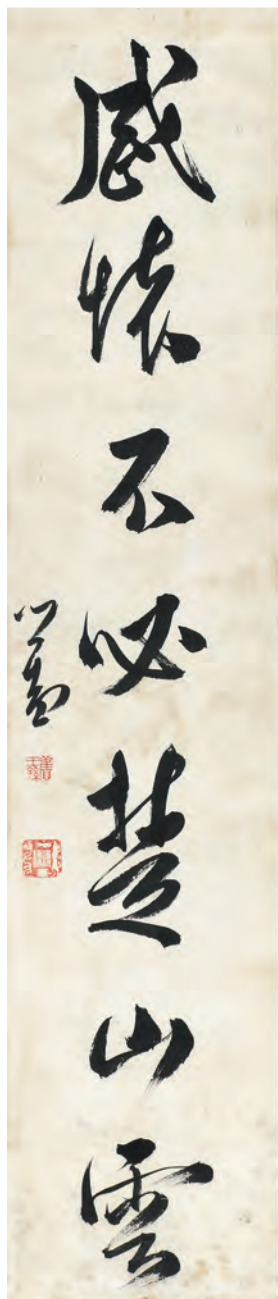 感懷不必楚山雲
心畬